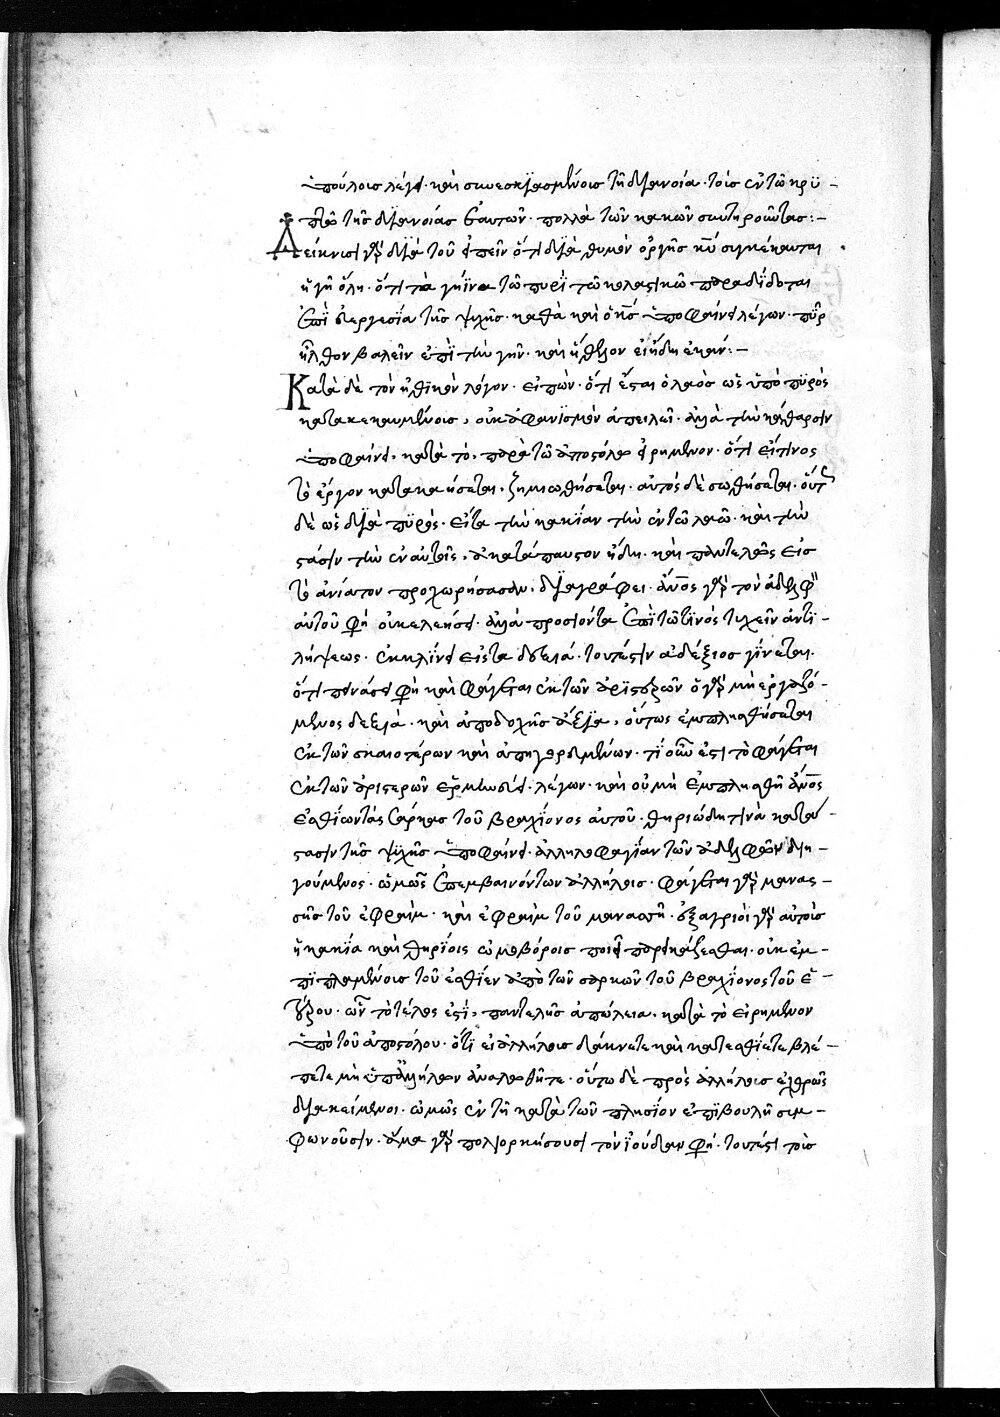 ὑπούλοις λέγει· καὶ συνεσκιασμένοις τῇ διανοία· τοῖς ἐν τῶ κρυ -
πτῶ τῆς διανοίας ἑαυτῶν· πολλὰ τῶν κακῶν συντηροῦντας: -
Δείκνυσι γὰρ διὰ τοῦ εἰπεῖν ὅτι διὰ θυμὸν ὀργῆς κυ συγκέκαυται
ἡ γῆ ὅλη· ὅτι τὰ γήϊνα τῶ πυρὶ τῶ κολαστικῶ παραδίδοται
ἐπὶ εὐεργεσία τῆς ψυχῆς· καθὰ καὶ ὁ κς ὑποφαίνει λέγων· πῦρ
ἦλθον βαλεῖν ἐπὶ τὴν γῆν· καὶ ἤθελον εἰ ἤδη ἐκάη: -
Κατὰ δὲ τὸν ἠθικὸν λόγον· εἰπὼν· ὅτι ἔσται ὁ λαὸς ὡς ὑπὸ πυρὸς
κατακεκαυμένοις, οὐκ ἀφανισμὸν ἀπειλεῖ· ἀλλὰ τὴν κάθαρσιν
ὑποφαίνει, κατὰ τὸ, παρὰ τῶ ἀποστόλω εἰρημένον· ὅτι εἴ τινος
τὸ ἔργον κατακαήσεται, ζημιωθήσεται· αὐτὸς δὲ σωθήσεται· οὕτ
δὲ ὡς διὰ πυρός· εἶτα τὴν κακίαν τὴν ἐν τῶ λαῶ· καὶ τὴν
στάσιν τὴν ἐν αὐτοῖς, ἀκατάπαυστον ἤδη· καὶ παντελῶς εἰς
τὸ ἀνίατον προχωρήσασαν, διαγράφει· ἄνος γὰρ τὸν ἀδελφὸν
αὐτοῦ φη οὐκ ἐλεήσει· ἀλλὰ προσιόντα ἐπὶ τῶ τινὸς τυχεῖν ἀντι -
λήψεως· ἐκκλινεῖ εἰς τὰ δεξιά· τουτέστιν ἀδέξιος γίνεται·
ὅτι πεινάσει φη καὶ φάγεται ἐκ τῶν ἀριστερῶν ὁ γὰρ μὴ ἐργαζό -
μενος δεξιὰ· καὶ ἀποδοχῆς ἄξια, οὗτος ἐμπλησθήσεται
ἐκ τῶν σκαιοτέρων καὶ ἀπηγορευμένων· τί οὖν ἐστι τὸ φάγεται
ἐκ τῶν ἀριστερῶν ἑρμηνεύει λέγων· καὶ οὐ μὴ ἐμπλησθῆ ἄνος
ἐσθίων τὰς σάρκας τοῦ βραχίονος αὐτοῦ· θηριώδη τινὰ κατά
στασιν τῆς ψυχῆς ὑποφαίνει· ἀλληλοφαγίαν τῶν ἀδελφῶν διη -
γούμενος· ὠμῶς ἐπεμβαινόντων ἀλλήλοις· φάγεται γὰρ μανασ -
σῆς τοῦ ἐφραὶμ· καὶ ἐφραὶμ τοῦ μανασσῆ· ἐξαγριοῖ γὰρ αὐτοὺς
ἡ κακία καὶ θηρίοις ὠμοβόροις ποιεῖ παρεικάζεσθαι· οὐκ ἐμ -
πιπλαμένοις τοῦ ἐσθίειν ἀπὸ τῶν σαρκῶν τοῦ βραχίονος τοῦ ἑ -
τέρου· ὧν τὸ τέλος ἐστὶ, παντελὴς ἀπώλεια, κατὰ τὸ εἰρημένον
ὑπὸ τοῦ ἀποστόλου· ὅτι εἰ ἀλλήλους δάκνετε καὶ κατεσθίετε βλέ -
πετε μὴ ὑπ' ἀλλήλων ἀναλωθῆτε· οὕτω δὲ πρὸς ἀλλήλους ἐχθρῶς
διακείμενοι· ὠμῶς ἐν τῆ κατὰ τῶν πλησίον ἐπιβουλῆ συμ -
φωνοῦσιν· ἅμα γὰρ πολιορκήσουσι τὸν ἰούδαν φη· τουτέστι τοὺς